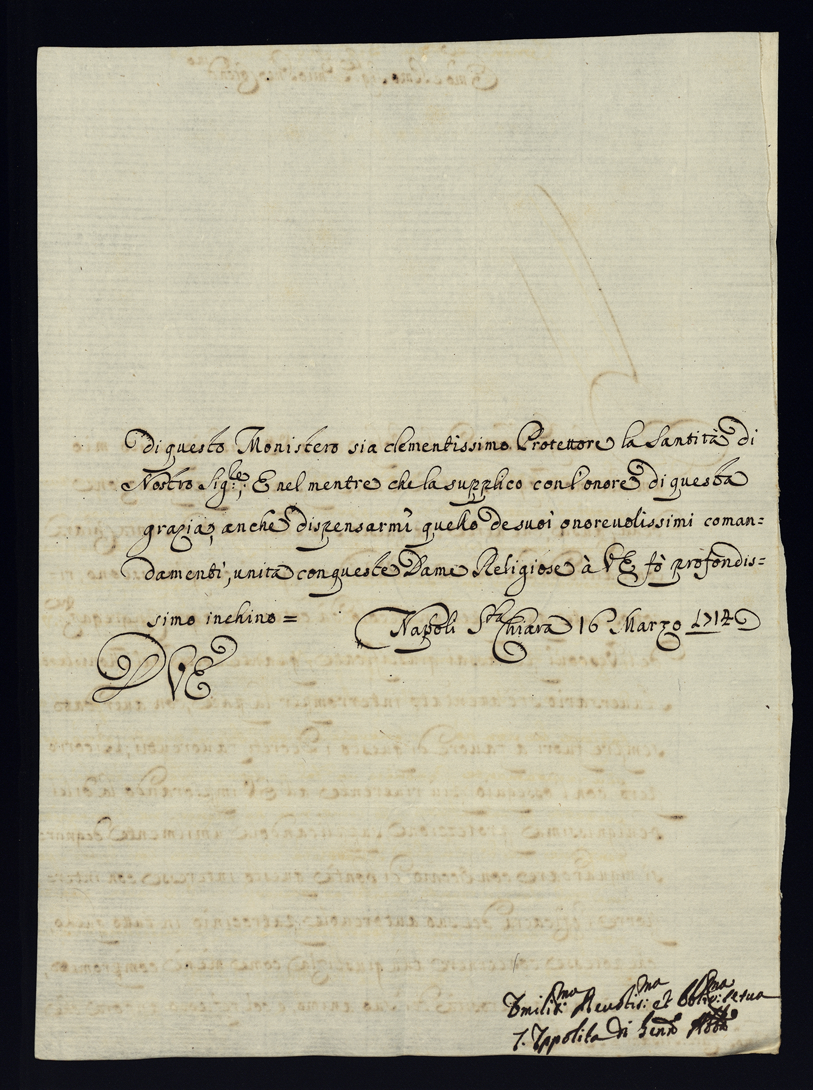 di questo Monistero sia clementissimo Protettore la Santità di
Nostro Sig:re; E nel mentre che la supplico con l'onore di questa
grazia, anche dispensarmi quello de suoi onorevolissimi coman=
damenti, unita con queste Dame Religiose à VE fò profondis=
simo inchino = Napoli S.ta Chiara 16 Marzo 1714
D VE
Umilis:ma Devotis:ma et Oblig:ma Serva
Ippolita di